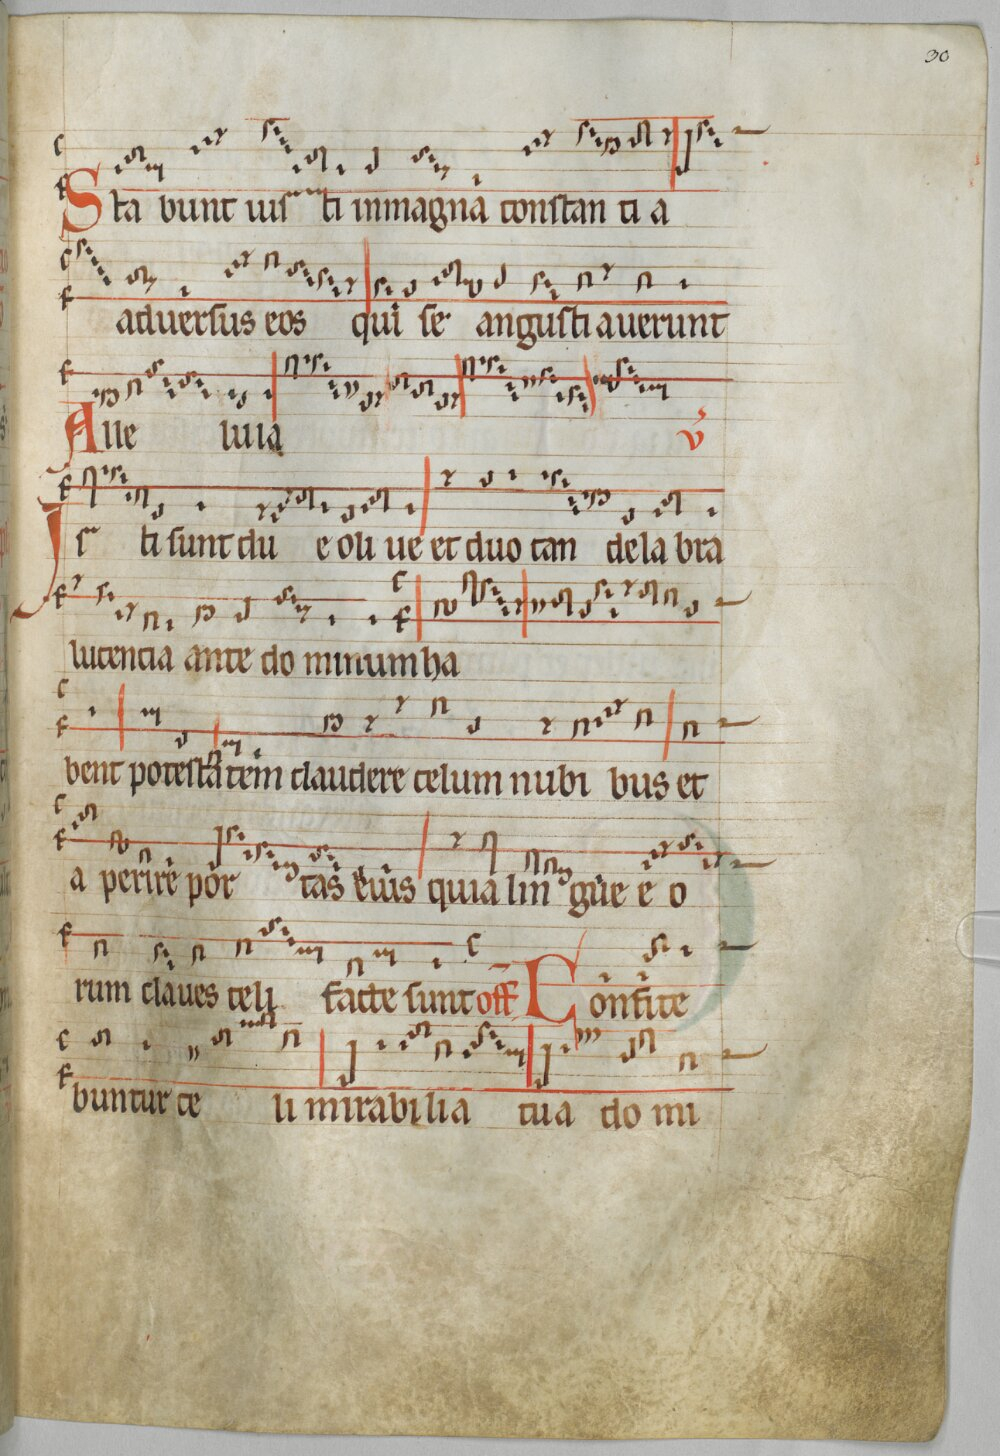 30
Sta bunt iusti inmagna constan ti a
adversus eos qui se angustiaverunt
Alle luia v
Isti sunt du e oli ve et duo can dela bra
lucencia ante do minum ha
bent potestatem claudere celum nubi bus et
a perire portas eius quia lin gue e o
rum claves celi facte sunt off Confite
buntur ce li mirabi lia tua do mi